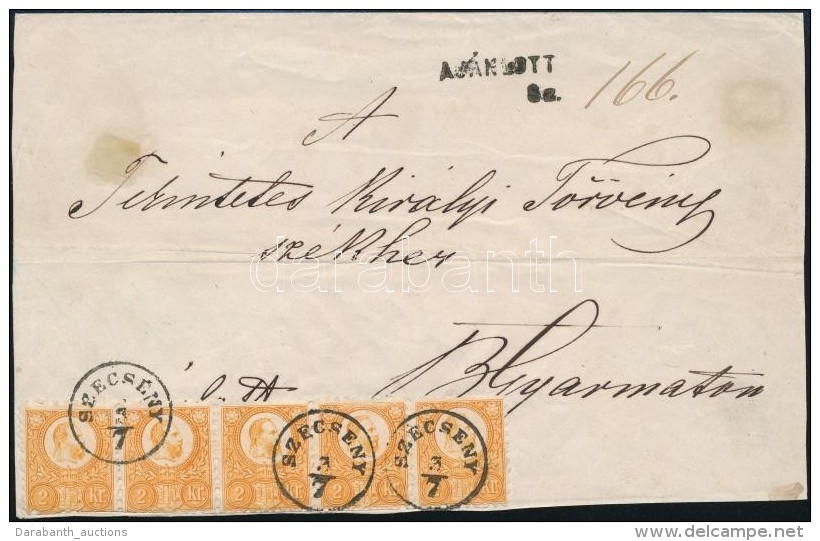 AJÁNLOTT
Sz. 166.
A
Tekintetes Királyi Törvény
székhez
darabanth
B Gyarmaton
SZECSENY
3/7
SZECSENY
3/7
SZECSENY
3/7
2 Kr.
2 Kr.
2 Kr.
2 Kr.
2 Kr.
Darabanth_auctions
delcampe.net